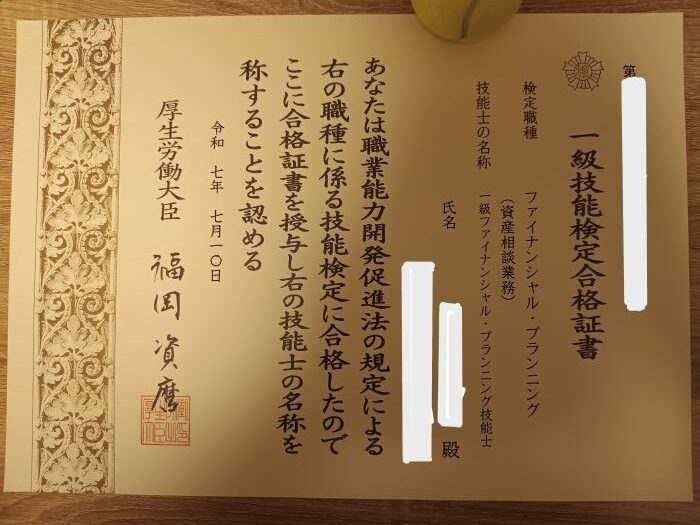 第
一級技能検定合格証書
検定職種 ファイナンシャル・プランニング
(資産相談業務)
技能士の名称 一級ファイナンシャル・プランニング技能士
氏名
殿
あなたは職業能力開発促進法の規定による
右の職種に係る技能検定に合格したので
ここに合格証書を授与し右の技能士の名称を
称することを認める
令和 七年 七月一〇日
厚生労働大臣 福岡 資麿